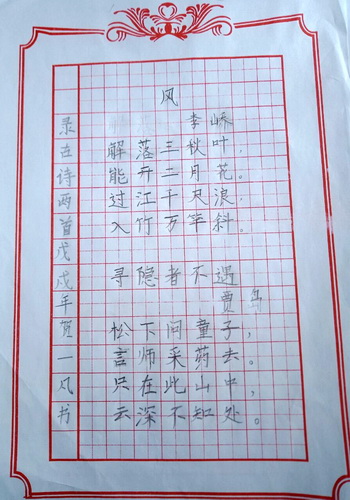 风
李峤
解落三秋叶,
能开二月花。
过江千尺浪,
入竹万竿斜。
寻隐者不遇
贾岛
松下问童子,
言师采药去。
只在此山中,
云深不知处。
录古诗两首戊戌年贺一凡书